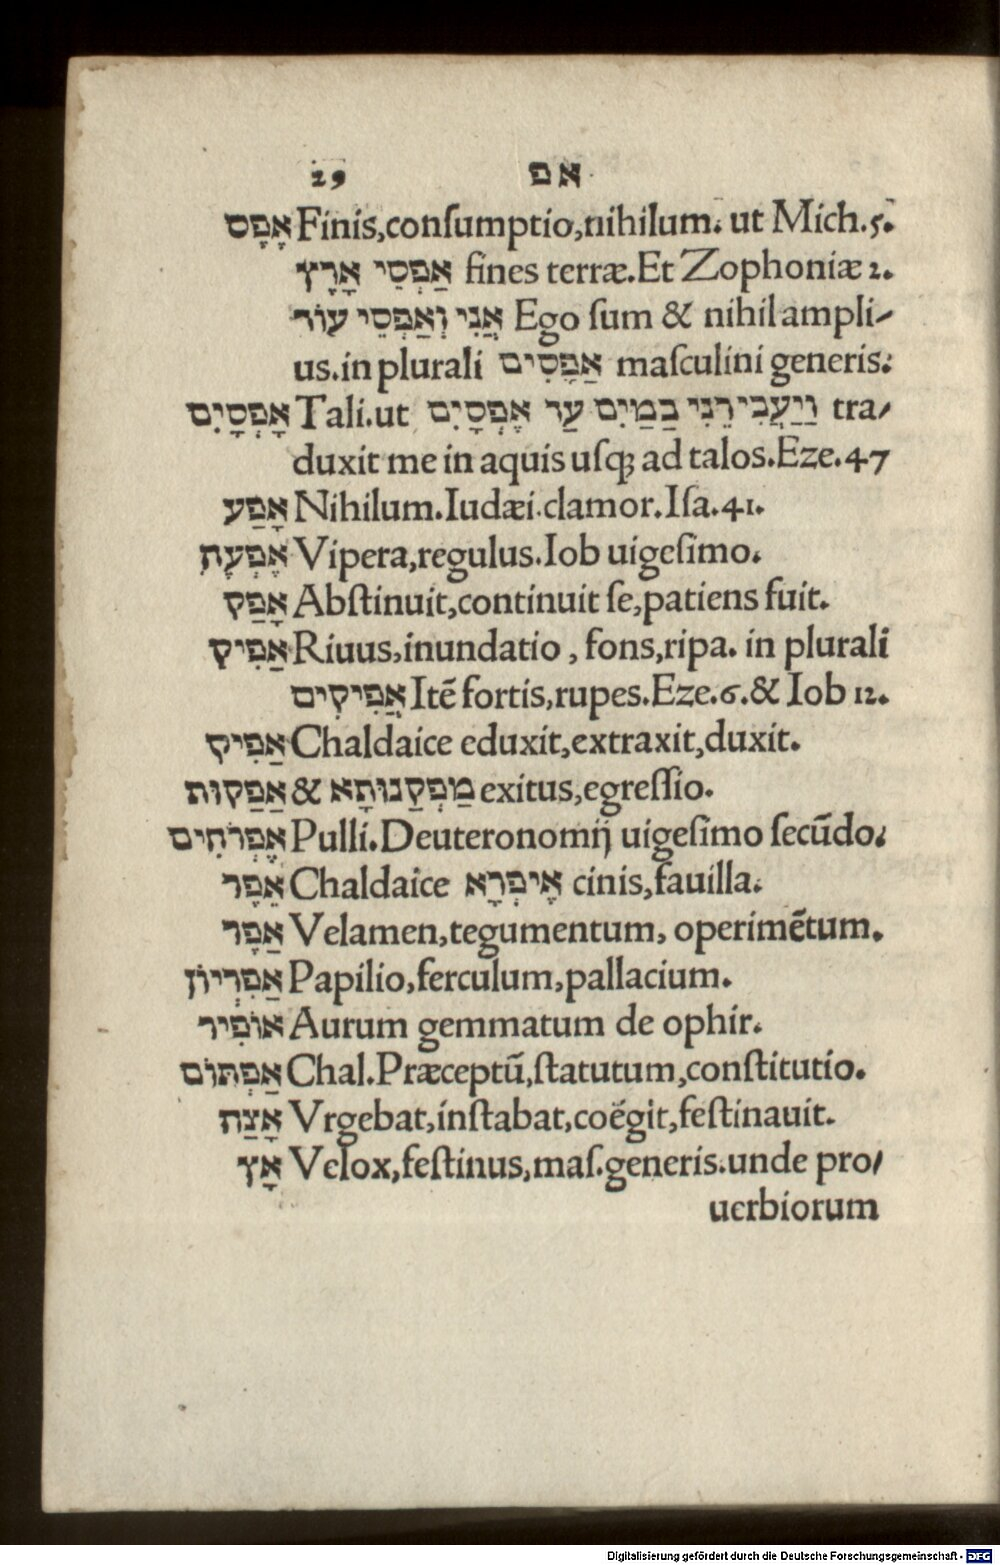 29 אפ
אָפָס Finis,conſumptio,nihilum. ut Mich.5.
אַפְסֵי אָרֶץ fines terræ.Et Zophoniæ 2.
אֲנִי וְאַפְסִי עוֹר Ego ſum & nihil ampli-
us.in plurali אַפָסִים maſculini generis.
אָפְסָיִם Tali.ut וַיַעֲבִירֵנִי בַמַיִם עַר אָפְסָיִם tra-
duxit me in aquis uſqꝫ ad talos.Eze.47
אָפַע Nihilum.Iudæi.clamor.Iſa.41.
אֶפְעֶת Vipera,regulus.Iob uigeſimo.
אָפַק Abſtinuit,continuit ſe,patiens fuit.
אַפִיק Riuus,inundatio , fons,ripa. in plurali
אֲפִיקִים Itē fortis,rupes.Eze.6.& Iob 12.
אַפִיק Chaldaice eduxit,extraxit,duxit.
אַפַקוּת & מַפְקַנוּתָא exitus,egreſſio.
אֶפְרֹחִים Pulli.Deuteronomij uigeſimo ſecūdo.
אֵפֶר Chaldaice אֶיפְרָא cinis,fauilla.
אַפֶר Velamen,tegumentum, operimētum.
אַפִרְיוֹן Papilio,ferculum,pallacium.
אוֹפִיר Aurum gemmatum de ophir.
אַפְתּוֹם Chal.Præceptū,ſtatutum,conſtitutio.
אָצַת Vrgebat,inſtabat,coëgit,feſtinauit.
אָץ Velox,feſtinus,maſ.generis.unde pro-
uerbiorum
Digitalisierung gefördert durch die Deutsche Forschungsgemeinschaft - DFG